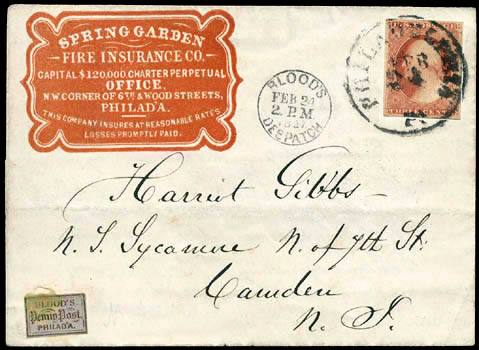 SPRING GARDEN
FIRE INSURANCE CO.
CAPITAL $120,000. CHARTER PERPETUAL
OFFICE,
N.W. CORNER OF 6TH & WOOD STREETS,
PHILAD'A.
THIS COMPANY INSURES AT REASONABLE RATES
LOSSES PROMPTLY PAID.
BLOOD'S
FEB 24
2. P.M
1857
DESPATCH
PHILADELPHIA
FEB
THREE CENTS
Harriet Gibbs
N. S. Sycamore N. of 7th St.
Camden
N. J.
BLOOD'S
Penny Post.
PHILAD'A.